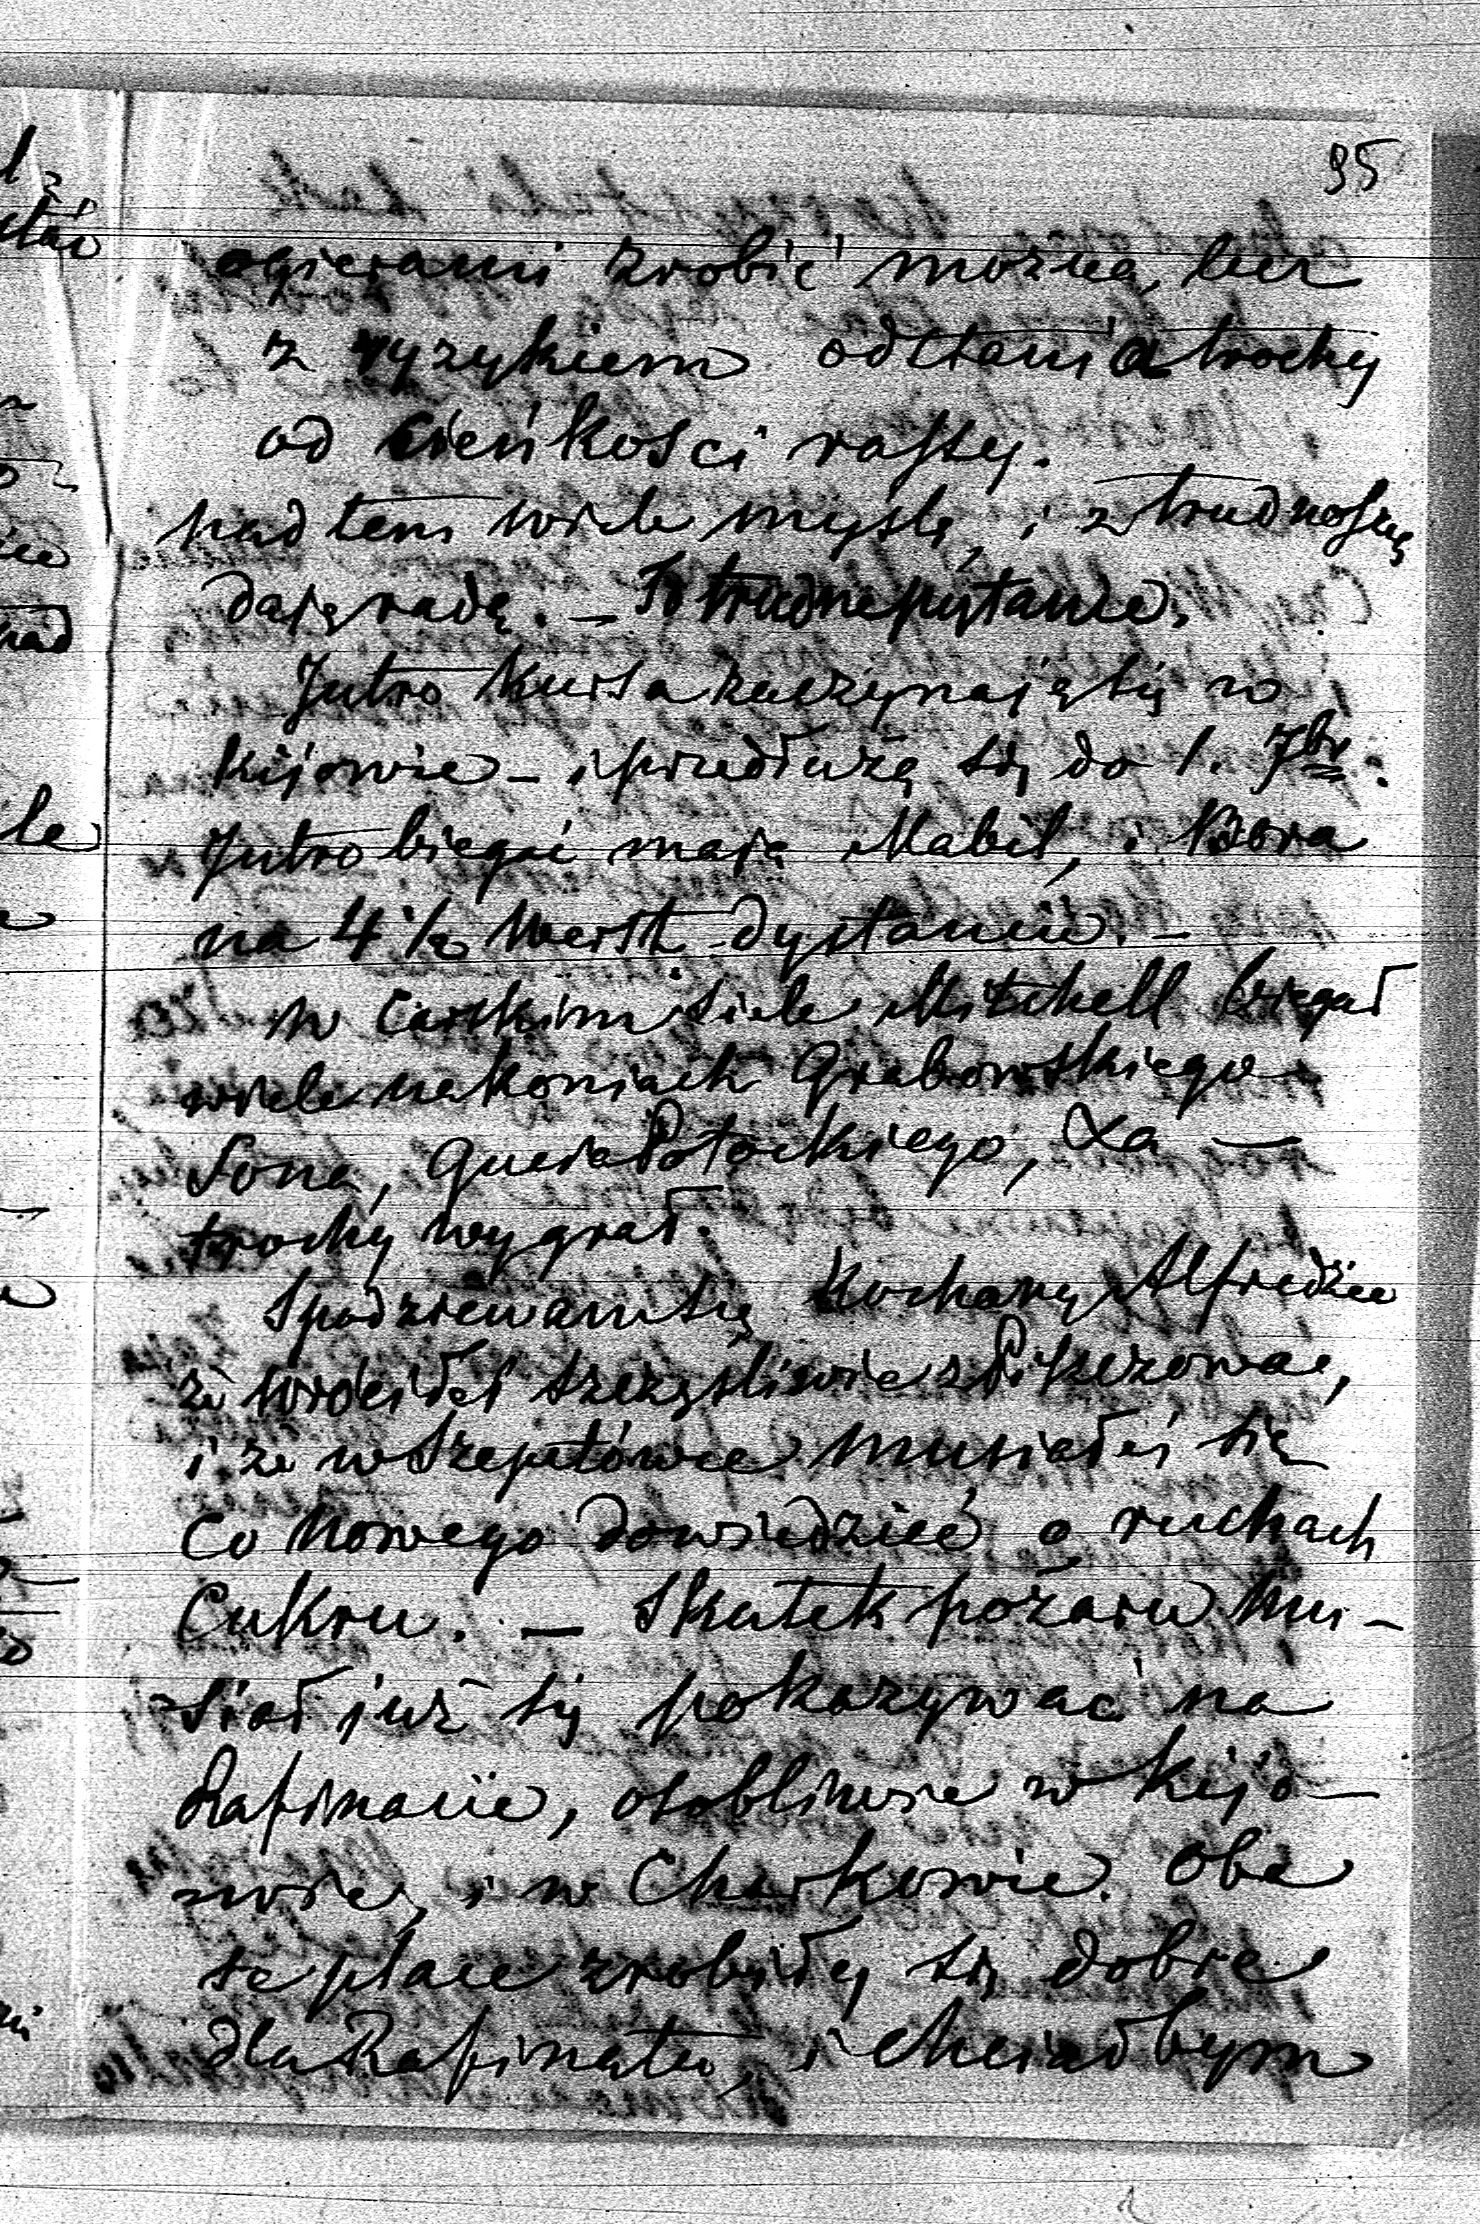 95
ogierami zrobić można, lecz
z ryzykiem odstania trochy
od cieńkości rassy.
nad tem wiele myślę, i z trudnością
daję radę. — To trudne pytanie.
Jutro kursa zaczynają się w
Kijowie — i przedłużą się do 1. 7br.
Jutro biegać mają Mabil, i Bora
na 4 1/2 werst dystancii. —
w Carskim siele Mitchell biegał
wiele na koniach Grabowskiego
Sona, Potockiego, Xa —
trochy wygrał.
Spodziewam się Kochany Alfredzie
że wróciłeś szczęśliwie z Pikczowa,
i że w Szepetówce musiałeś się
co nowego dowiedzieć o ruchach
Cukru. — Skutek pożaru mu-
siał już się pokazywać na
Rafinacie, osobliwie w Kijo-
wie, i w Charkowie. Obe
te place zrobiły się dobre
dla Rafinatu, i chciałbym